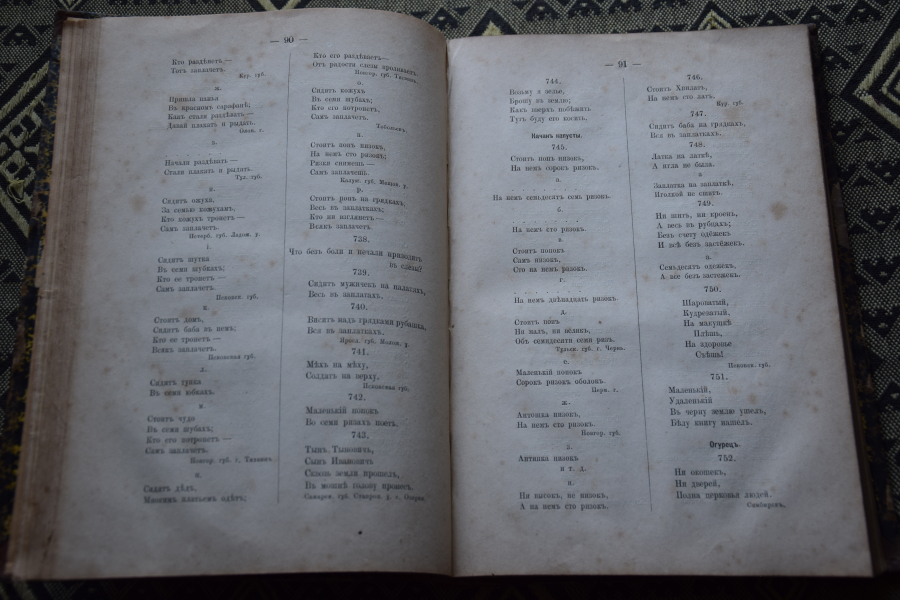 — 90 —
Кто раздѣнетъ,—
Тотъ заплачетъ.
Кур. губ.
ж.
Пришла панья
Въ красномъ сарафанѣ;
Какъ стали раздѣвать—
Давай плакать и рыдать.
з.
Начали раздѣвать—
Стали плакать и рыдать.
Тул. губ.
и.
Сидитъ
За семью кожухам,
Кто кожухъ тронетъ—
Самъ заплачетъ.
Петерб. губ. Ладож. у.
і.
Сидитъ шутка
Въ семи шубкахъ;
Кто ее тронетъ—
Самъ заплачетъ.
Псковск. губ.
к.
Стоитъ домъ,
Сидитъ баба въ немъ;
Кто ее тронетъ—
Всякъ заплачетъ.
Псковская губ.
л.
Сидитъ
Въ семи юбкахъ.
м.
Стоитъ чудо
Въ семи шубахъ;
Кто его потронетъ—
Самъ заплачетъ.
Новгор. губ. г. Тихвинъ.
н.
Сидитъ дѣдъ,
Многим платьемъ одѣтъ;
Кто его раздѣнетъ—
Отъ радости слезы проливаетъ.
Новгор. губ.
о.
Сидитъ кожухъ
Въ семи шубахъ;
Кто его потронетъ,
Самъ заплачетъ.
Тобольскъ.
п.
Стоитъ попъ низокъ,
На немъ сто ризокъ;
Ризки снимешь—
Самъ заплачешь.
Калуж. губ. Мещов. у.
р.
Стоитъ ронъ на грядкахъ,
Весь въ заплаткахъ;
Кто ни взглянетъ—
Всякъ заплачетъ.
738.
Что безъ боли и печали приводитъ
въ слезы?
739.
Сидитъ мужичекъ на палатяхъ,
Весь въ заплатахъ.
740.
Виситъ надъ грядками рубашка,
Вся въ заплаткахъ.
Яросл. губ. Молож. у.
741.
Мѣхъ на мѣху,
Солдатъ на верху.
Псковская губ.
742.
Маленькій попокъ
Во семи ризахъ поетъ.
743.
Тынъ Тыновичъ,
Сынъ Ивановичъ
Сквозь земли прошелъ,
Въ мошнѣ голову пронесъ.
Самарск. губ. Ставроп. у. с. Озерки.
— 91 —
744.
Возьму я зелье,
Брошу въ землю;
Какъ вверхъ побѣжитъ
Тутъ буду его косить.
Качанъ капусты.
745.
Стоитъ попъ низокъ,
На немъ сорокъ ризокъ.
а.
На немъ семьдесятъ семь ризокъ.
б.
На немъ сто ризокъ.
в.
Стоитъ попокъ
Самъ низокъ,
Сто на немъ ризокъ.
г.
На немъ двѣнадцать ризокъ.
д.
Стоитъ попъ
Ни малъ, ни великъ,
Объ семидесяти семи ризъ.
Тульск. губ. г. Чернь.
е.
Маленькій попокъ
Сорокъ ризокъ оболокъ.
Перм. г.
ж.
Антошка низокъ,
На немъ сто ризокъ.
Новгор. губ.
з.
Антипка низокъ
и т. д.
и.
Ни высокъ, не низокъ,
А на немъ сто ризокъ.
746.
Стоитъ
На немъ сто латъ.
Кур. губ.
747.
Сидитъ баба на грядкахъ,
Вся въ заплаткахъ.
748.
Латка на латкѣ,
А игла не была.
а
Заплатка на заплаткѣ,
Иголкой не сшитъ.
749.
Ни шитъ, ни кроенъ,
А весь въ рубцахъ;
Безъ счету одёжекъ
И всѣ безъ застёжекъ.
а.
Семьдесятъ одежекъ,
А все безъ застежекъ.
750.
Шароватый,
Кудреватый,
На макушкѣ
Плѣшь,
На здоровье
Съѣшь!
Псковск. губ.
751.
Маленькій,
Удаленькій
Въ черну землю ушелъ,
Бѣлу книгу нашелъ.
Огурецъ.
752.
Ни окошекъ,
Ни дверей,
Полна церковья людей.
Симбирскъ.